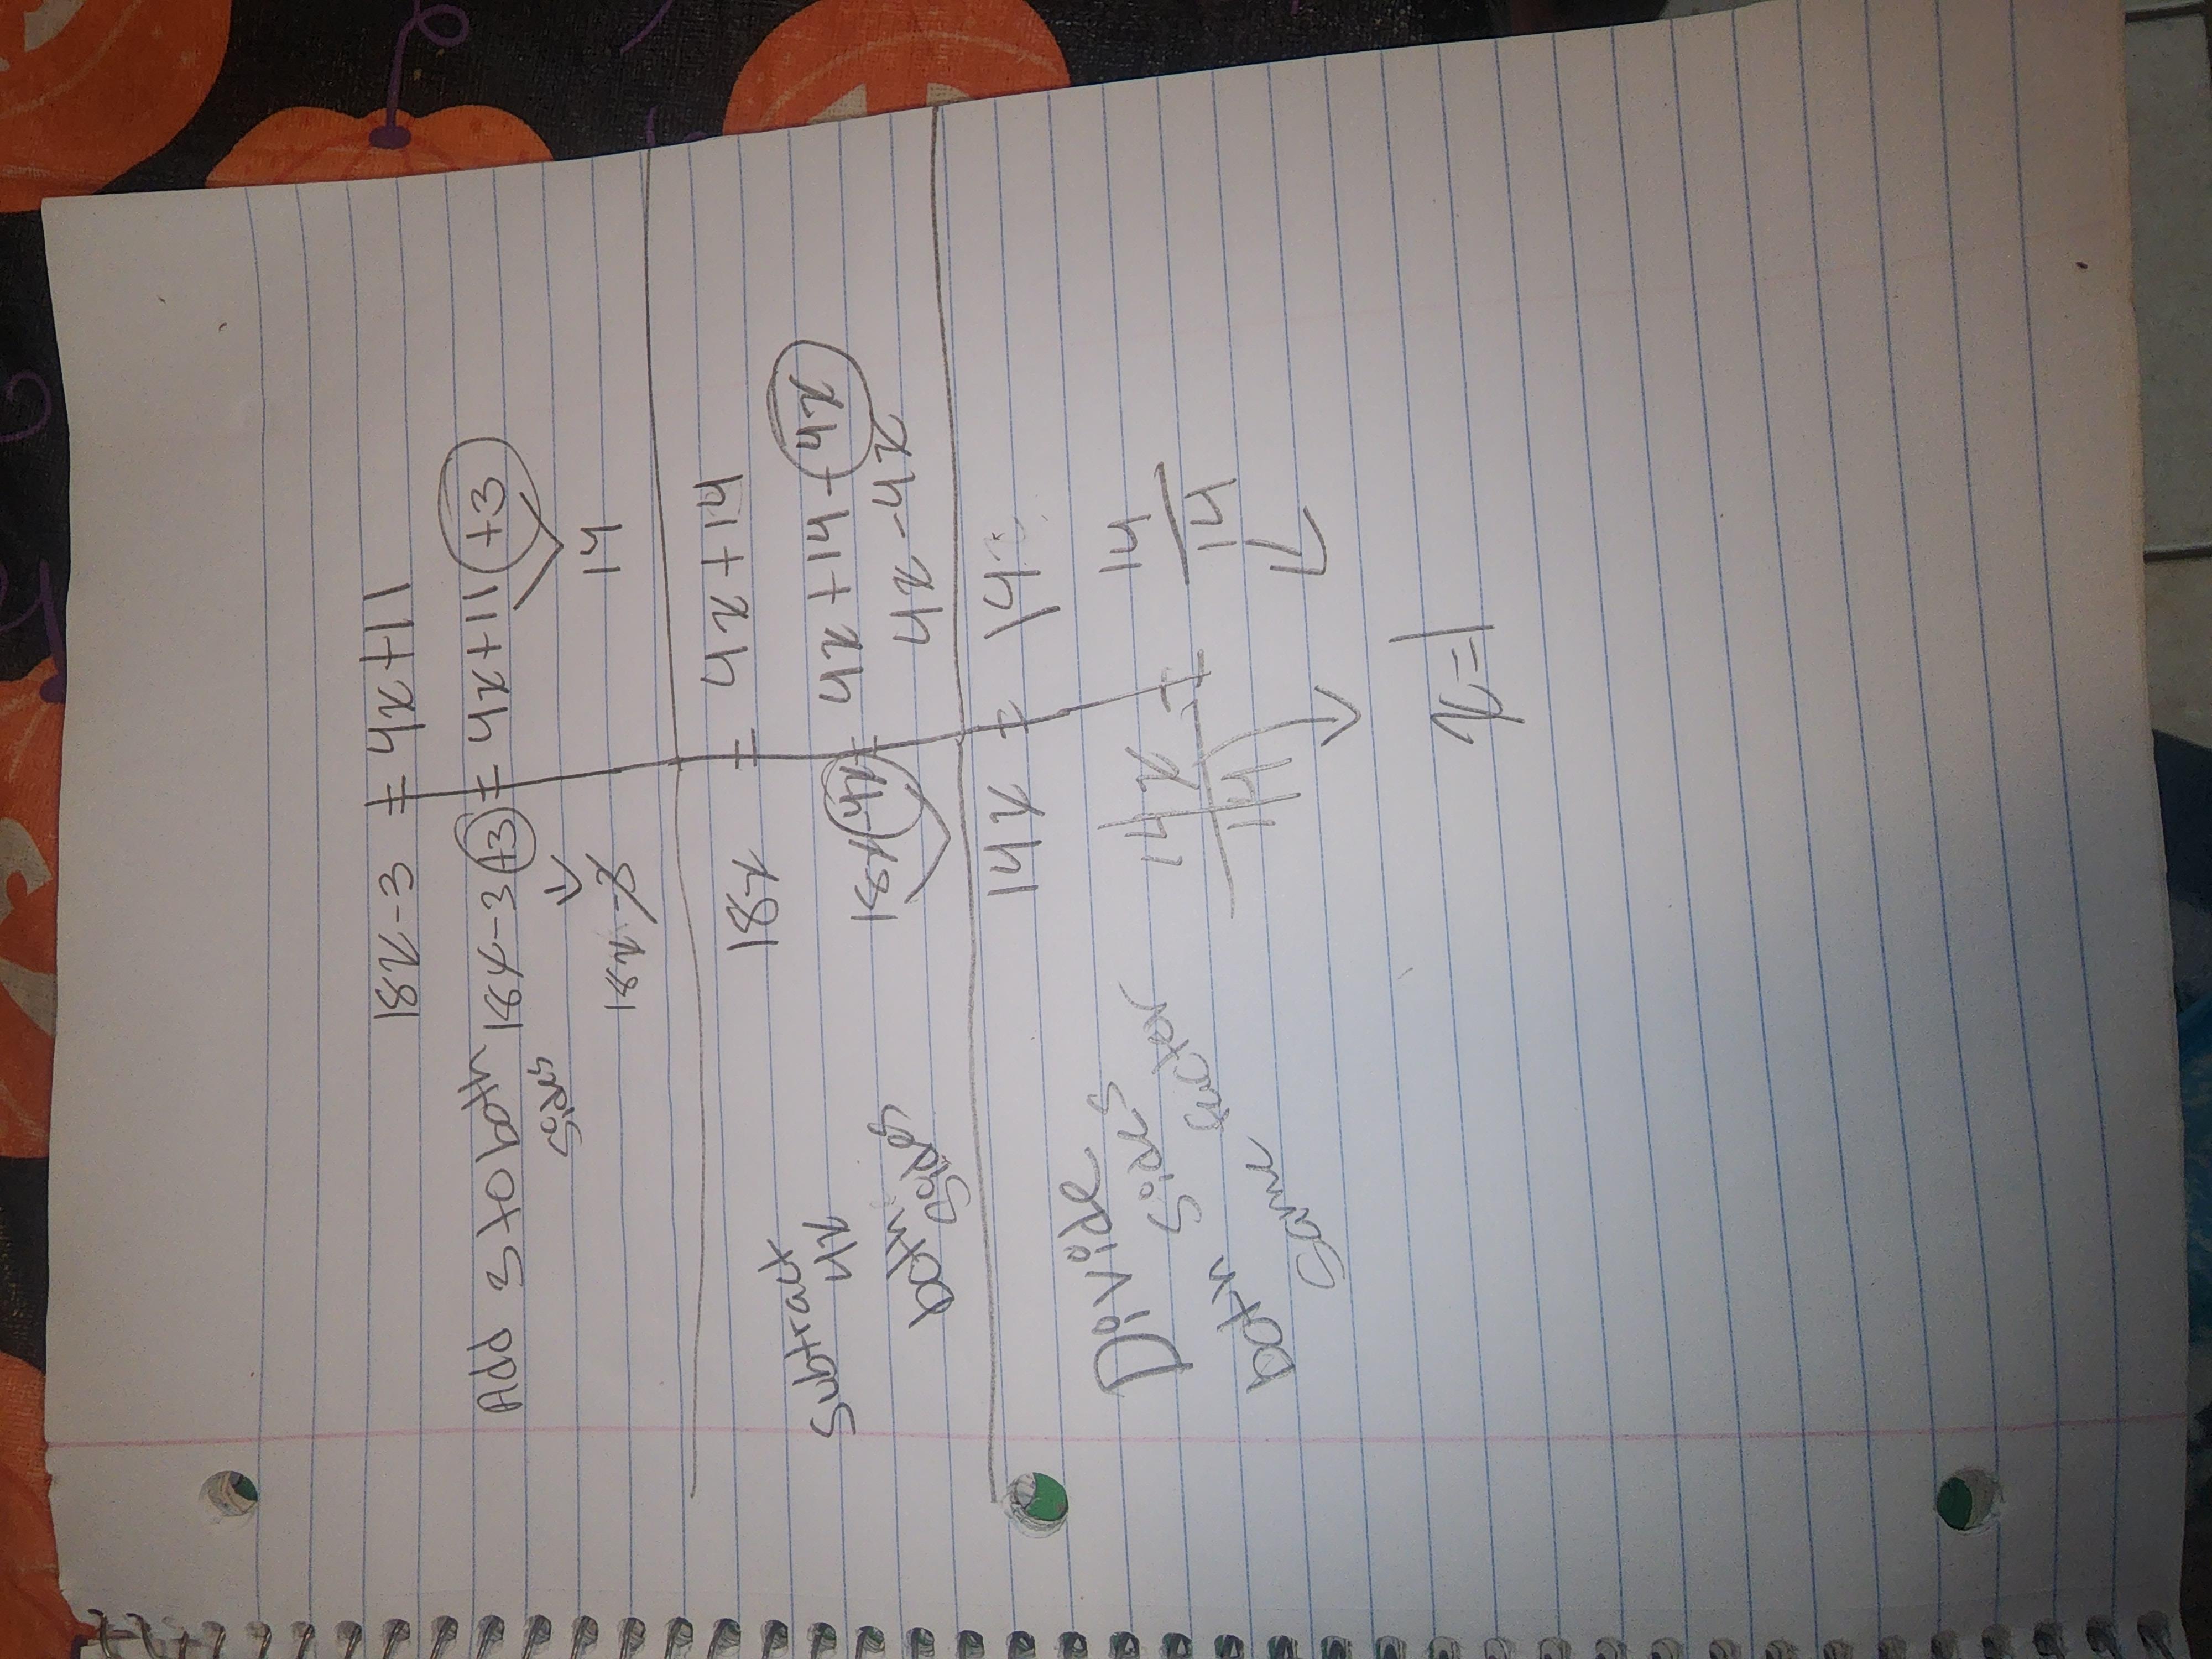 18x-3 = 4x+11
Add 3 to both 18x-3+3 = 4x+11+3
sides
18x-3 14
18x = 4x+14
Subtract 4x 18x-4x = 4x+14-4x
both sides 4x-4x
14x = 14
Divide 14x = 14
both sides 14 14
same factor
x=1